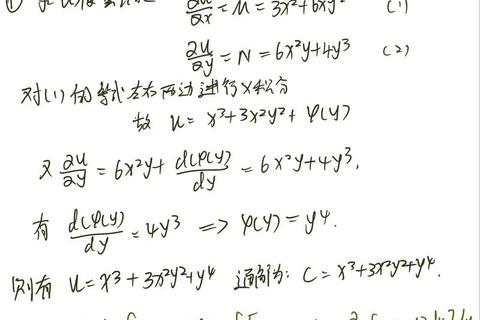 ∂u/∂x = M = 3x²+6xy² (1)
∂u/∂y = N = 6x²y+4y³ (2)
对(1)的等式左右两边进行x积分
故 u = x³+3x²y²+φ(y)
又 ∂u/∂y = 6x²y + d(φ(y))/dy = 6x²y+4y³,
有 d(φ(y))/dy = 4y³ => φ(y) = y⁴.
则有 u = x³+3x²y²+y⁴ 通解为: C = x³+3x²y²+y⁴.